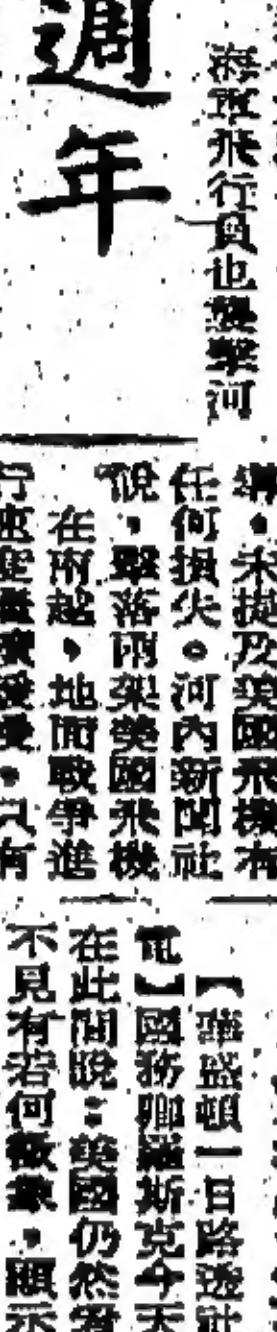 海軍飛行員也襲擊河
週年
導。未提及美國飛機有
任何損失。河內新聞社
說，擊落兩架美國飛機
在南越，地面戰爭進
【華盛頓一日路透社
電】國務卿羅斯克今天
在此間說：美國仍然
不見有若何徵象，顯示